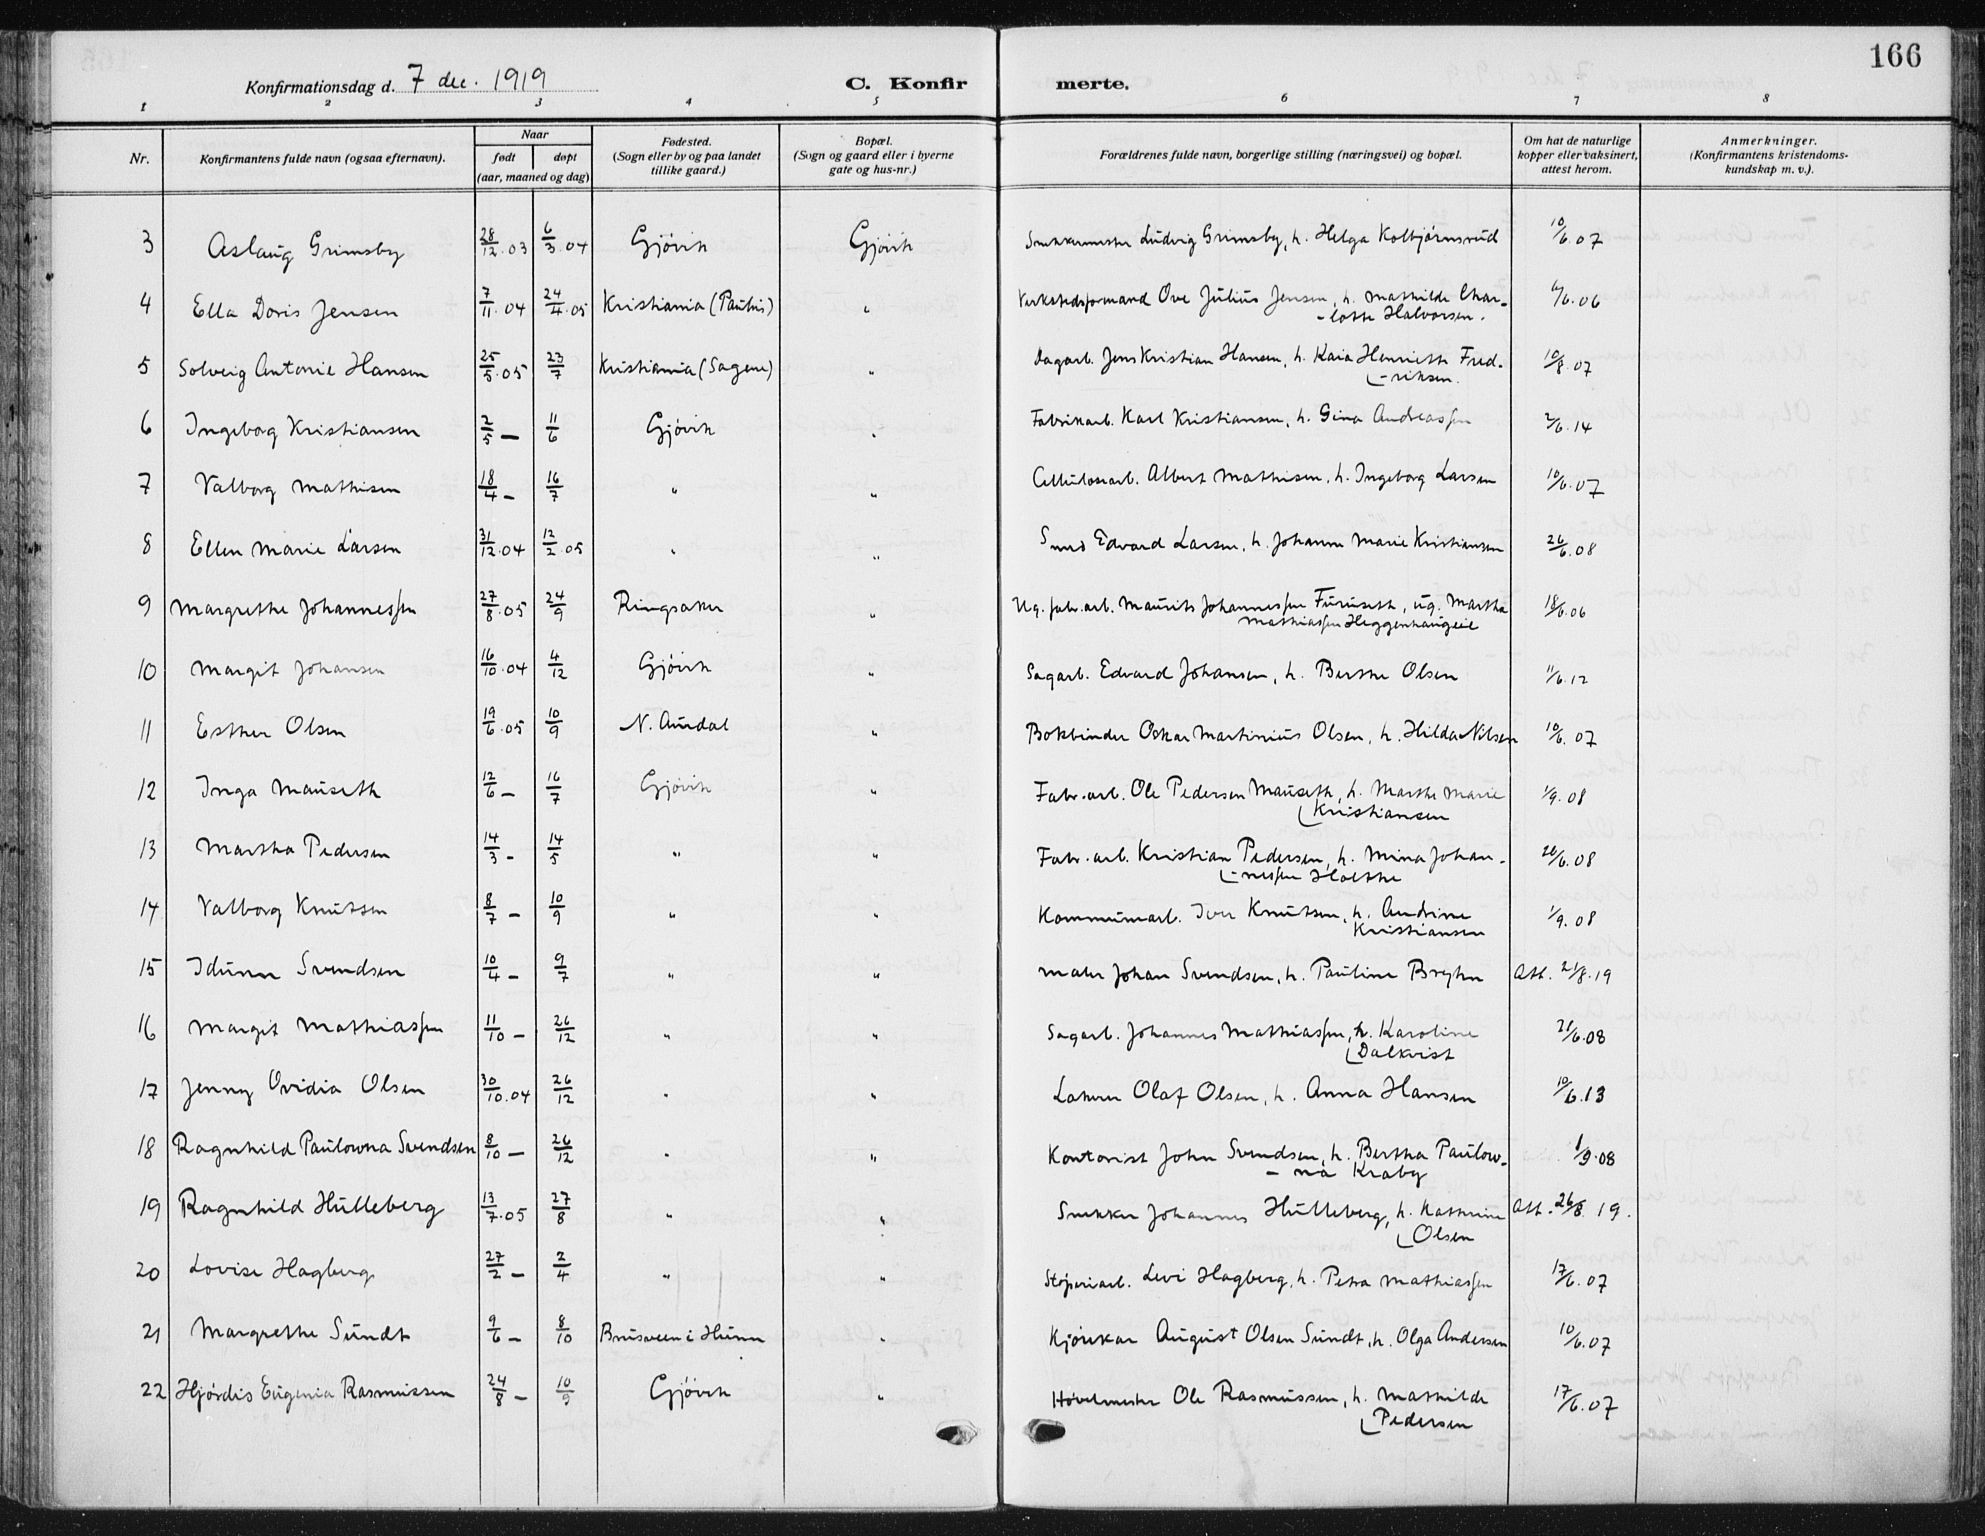 166
Konfirmationsdag d. 7 dec. 1919 C. Konfirmerte.
1 2 3 4 5 6 7 8
Nr. Konfirmantens fulde navn (ogsaa efternavn). Naar født døpt (aar, maaned og dag) Fødested. (Sogn eller by og paa landet tillike gaard.) Bopæl. (Sogn og gaard eller i byerne gate og hus-nr.) Forældrenes fulde navn, borgerlige stilling (næringsvei) og bopæl. Om hat de naturlige kopper eller vaksinert, attest herom. Anmerkninger. (Konfirmantens kristendomskundskap m. v.).
3 Aslaug Grimsby 28/12.03 6/3.04 Gjøvik Gjøvik Snekkermester Ludvig Grimsby, h. Helga Kolbjørnsrud 10/6.07
4 Ella Doris Jensen 7/11.04 24/4.05 Kristiania (Paulus) " Verkstedsformand Ove Julius Jensen, h. Mathilde Char-
-lotte Halvorsen.  6/6.06
5 Solveig Antonie Hansen 25/5.05 23/7 Kristiania (Sagene) " Dagarb. Jens Kristian Hansen, h. Kaia Henriette Fred-
-riksen. 10/8.07
6 Ingeborg Kristiansen 2/5 — 11/6 Gjøvik " Fabrikarb. Karl Kristiansen, h. Gina Andreassen 2/6.14
7 Valborg Mathisen 18/4 — 16/7 " " Cellulosearb. Albert Mathisen, h. Ingeborg Larsen 10/6.07
8 Ellen Marie Larsen 31/12.04 12/2.05 " " Smed Edvard Larsen, h. Johanne Marie Kristiansen 26/6.08
9 Margrethe Johannessen 27/8.05 24/9 Ringsaker " Ug. fabr.arb. Maurits Johannessen Furuseth, ug. Martha
Mathiassen Heggenhaugeie 18/6.06
10 Margit Johansen 16/10.04 4/12 Gjøvik " Sagarb. Edvard Johansen, h. Berthe Olsen 11/6.12
11 Esther Olsen 19/6.05 10/9 N. Aurdal " Bokbinder Oskar Martinius Olsen, h. Hilda Nilsen 10/6.07
12 Inga Mauseth 12/6 — 16/7 Gjøvik " Fabr.arb. Ole Pedersen Mauseth, h. Marthe Marie
Kristiansen 1/9.08
13 Martha Pedersen 14/3 - 14/5 " " Fabr.arb. Kristian Pedersen, h. Mina Johan-
-nessen Holthe 26/6.08
14 Valborg Knutsen 8/7 — 10/9 " " Kommunearb. Iver Knutsen, h. Andrine
Kristiansen 1/9.08
15 Idunn Svendsen 10/4 — 9/7 " " Maler Johan Svendsen, h. Pauline Bryhn Att. 21/8.19
16 Margit Mathiassen 11/10 — 26/12 " " Sagarb. Johannes Mathiassen, h. Karoline
Dalkvist 21/6.08
17 Jenny Ovidia Olsen 30/10.04 26/12 " " Lakerer Olaf Olsen, h. Anna Hansen 10/6.13
18 Ragnhild Paulowna Svendsen 8/10 — 26/12 " " Kontorist John Svendsen, h. Bertha Paulow-
-na Kraby 1/9.08
19 Ragnhild Hulleberg 13/7.05 27/8 " " Snekker Johannes Hulleberg, h. Kathrine
Olsen Att. 26/8 19.
20 Lovise Hagberg 27/2 — 2/4 " " Støperiarb. Levi Hagberg, h. Petra Mathiassen 17/6.07
21 Margrethe Sundt 9/6 — 8/10 Brusveen i Hunn " Kjørekar August Olsen Sundt, h. Olga Andersen 10/6.07
22 Hjørdis Eugenia Rasmussen 24/8 — 10/9 Gjøvik " Høvelmester Ole Rasmussen, h. Mathilde
Pedersen 17/6.07